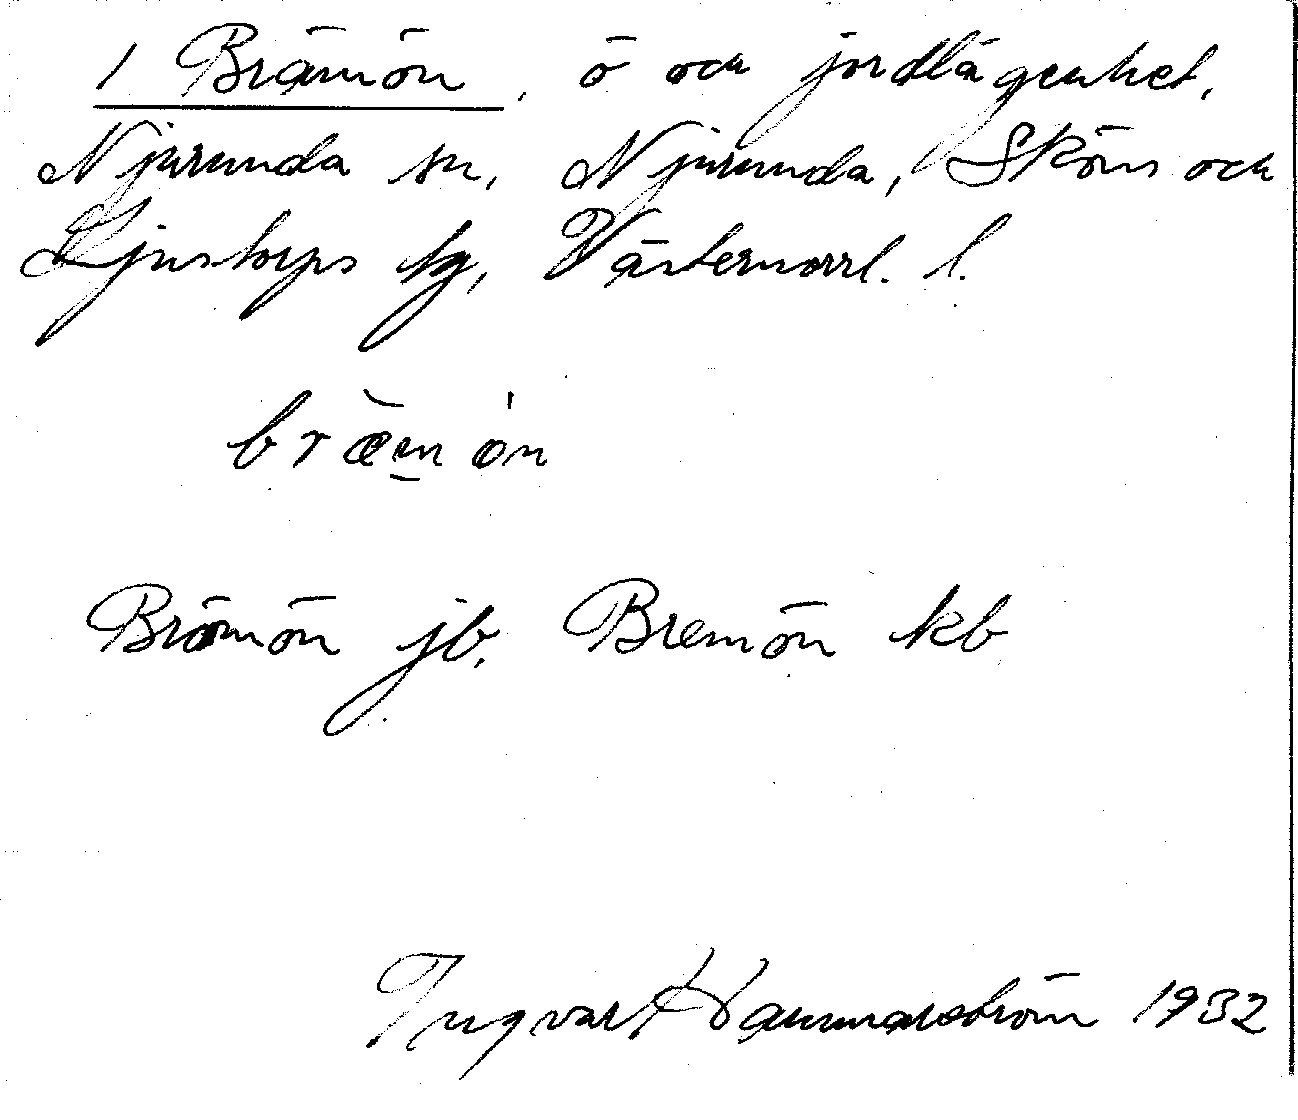 1 Brämön, ö och jordlägenhet,
Njurunda sn, Njurunda, Sköns och
Ljustorps tg, Västernorrl. l.
bræ̀mo̍n
Brämön jb. Bremön kb
Ingvar Hammarström 1932